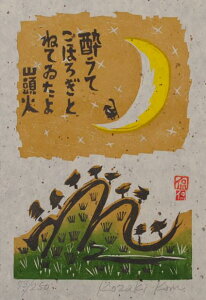 酔うて
こほろぎと
ねてゐたよ
山頭火
Kozaki Kan